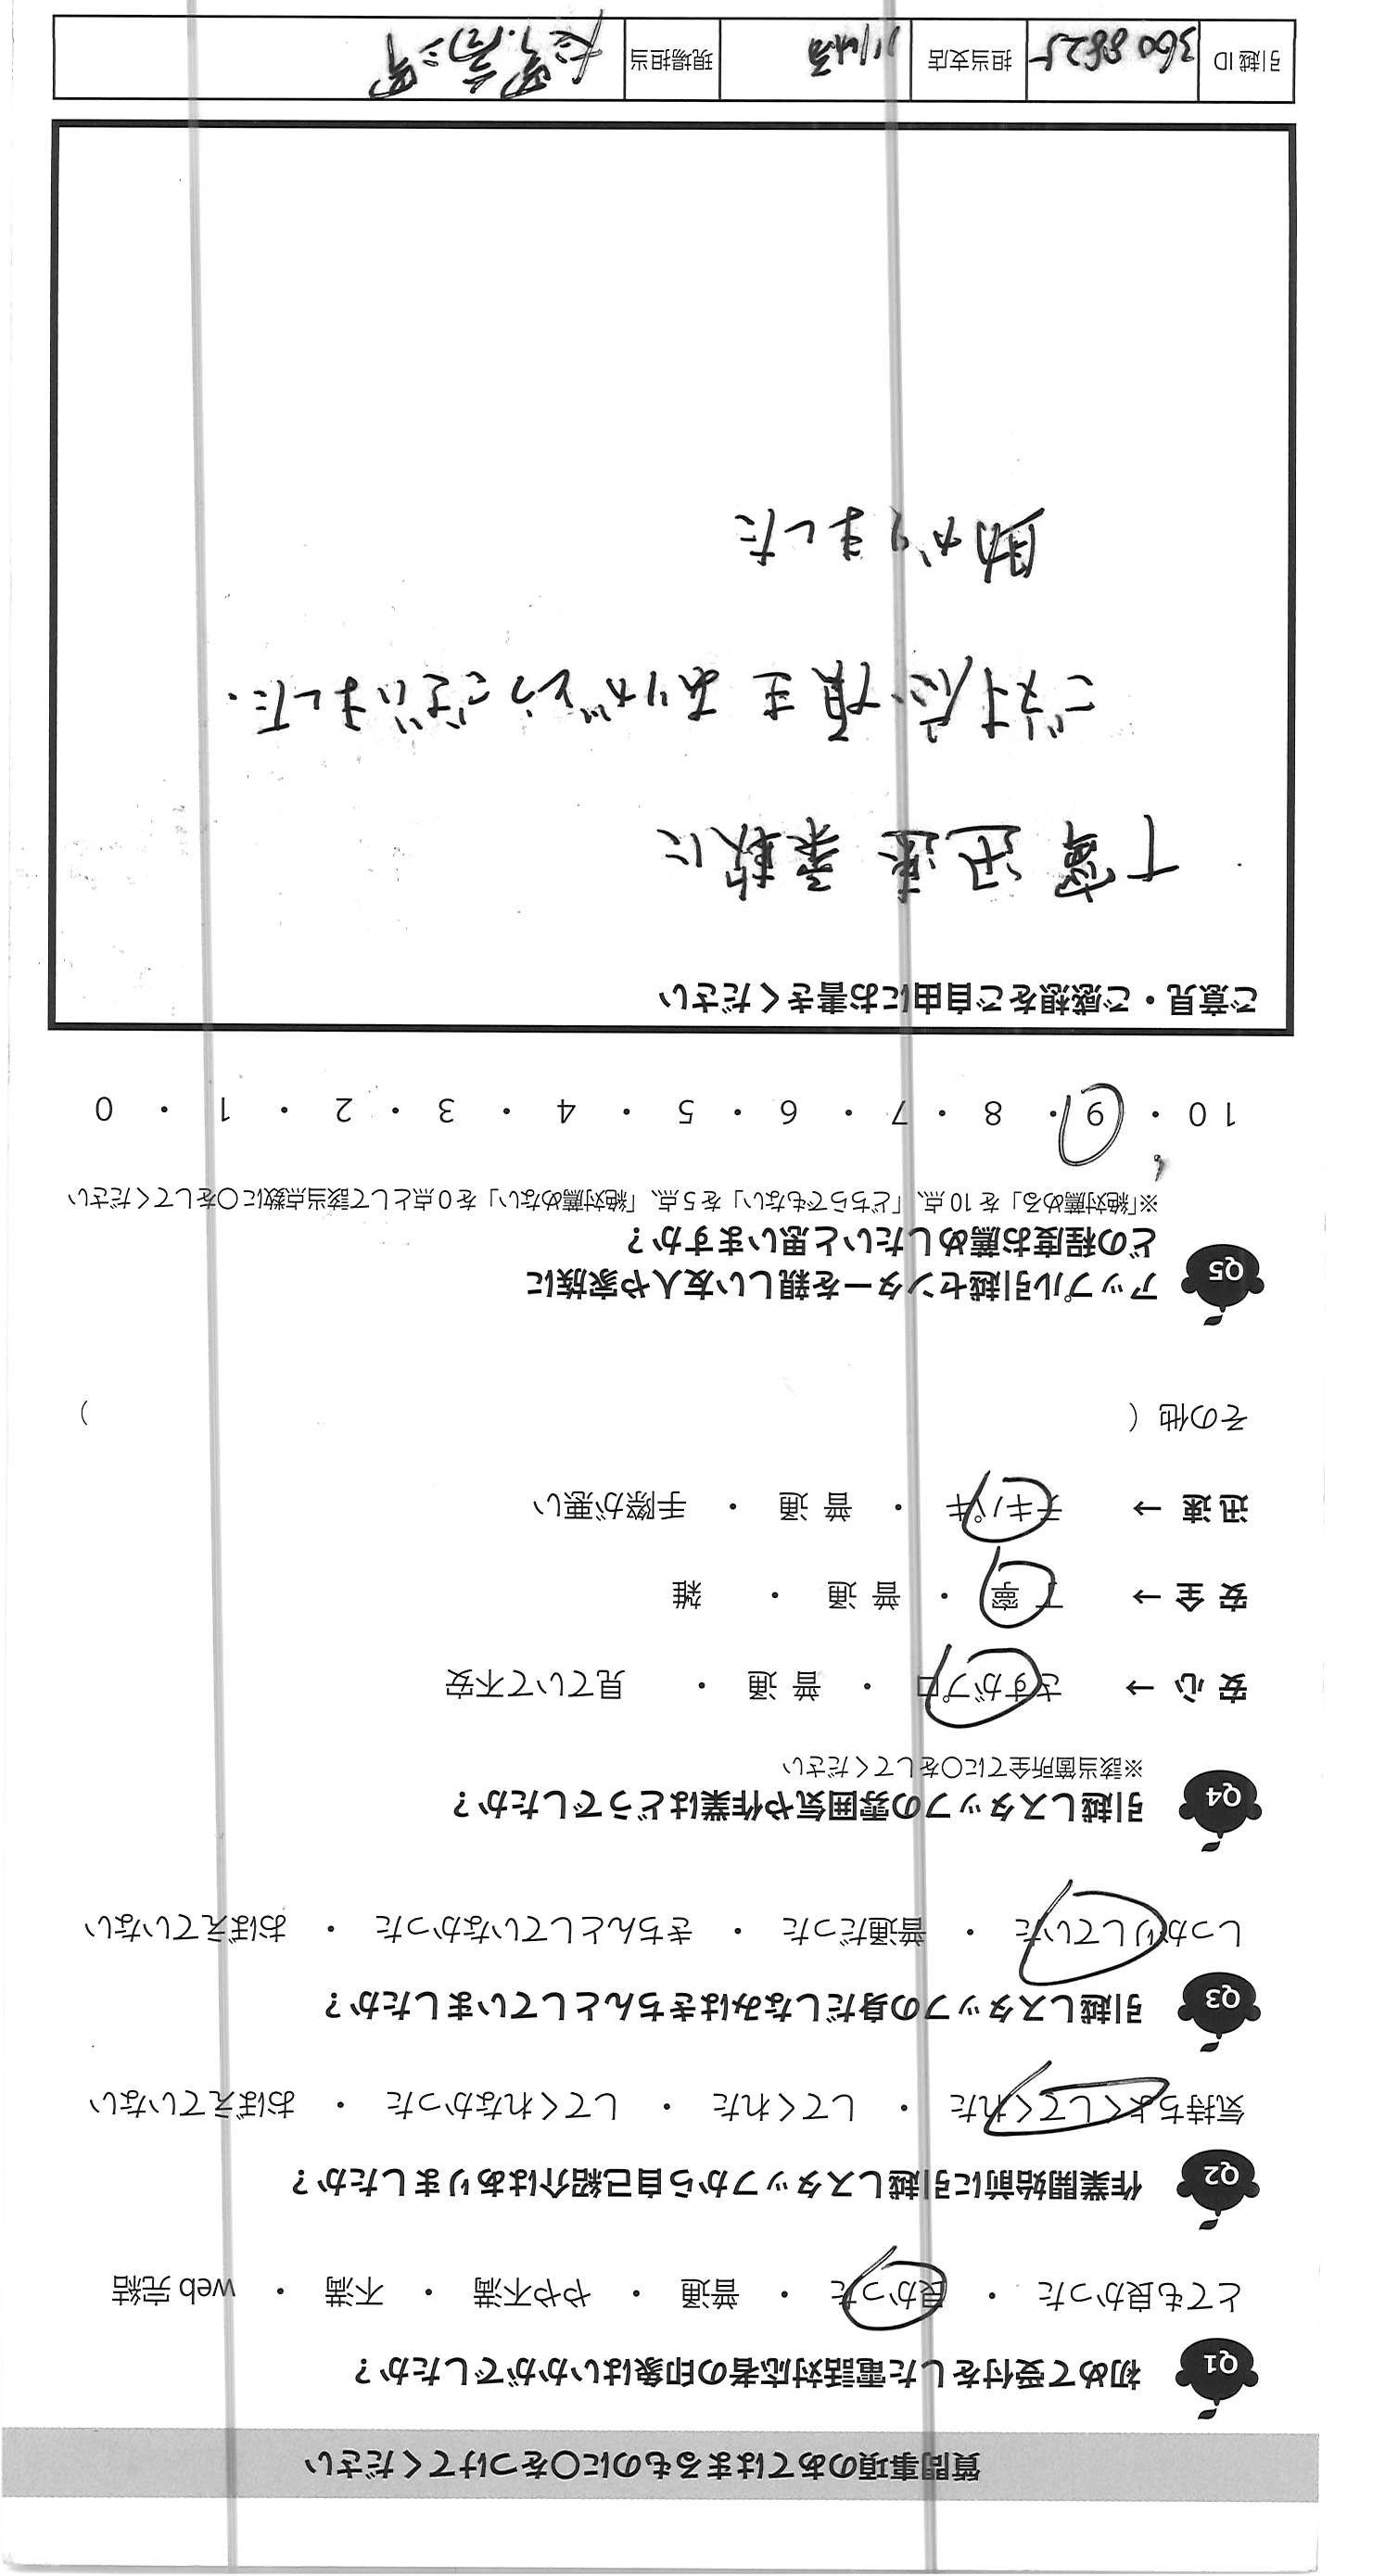 質問事項のあてはまるものに〇をつけてください
Q1 初めて受付をした電話対応者の印象はいかがでしたか？
とても良かった ・ 良かった ・ 普通 ・ やや不満 ・ 不満 ・ web 完結
Q2 作業開始前に引越しスタッフから自己紹介はありましたか？
気持ちよくしてくれた ・ してくれた ・ してくれなかった ・ おぼえていない
Q3 引越しスタッフの身だしなみはきちんとしていましたか？
しっかりしていた ・ 普通だった ・ きちんとしていなかった ・ おぼえていない
Q4 引越しスタッフの雰囲気や作業はどうでしたか？
※該当箇所全てに〇をしてください
安 心 → さすがプロ ・ 普 通 ・ 見ていて不安
安 全 → 丁 寧 ・ 普 通 ・ 雑
迅 速 → テキパキ ・ 普 通 ・ 手際が悪い
その他（ ）
Q5 アップル引越センターを親しい友人や家族に
どの程度お薦めしたいと思いますか？
※「絶対薦める」を 10 点、「どちらでもない」を 5 点、「絶対薦めない」を 0 点として該当点数に〇をしてください
10 ・ 9 ・ 8 ・ 7 ・ 6 ・ 5 ・ 4 ・ 3 ・ 2 ・ 1 ・ 0
ご意見・ご感想をご自由にお書きください
丁寧 迅速 柔軟に
ご対応頂き ありがとうございました.
助かりました
引越 ID 3608825 担当支店 川崎 現場担当